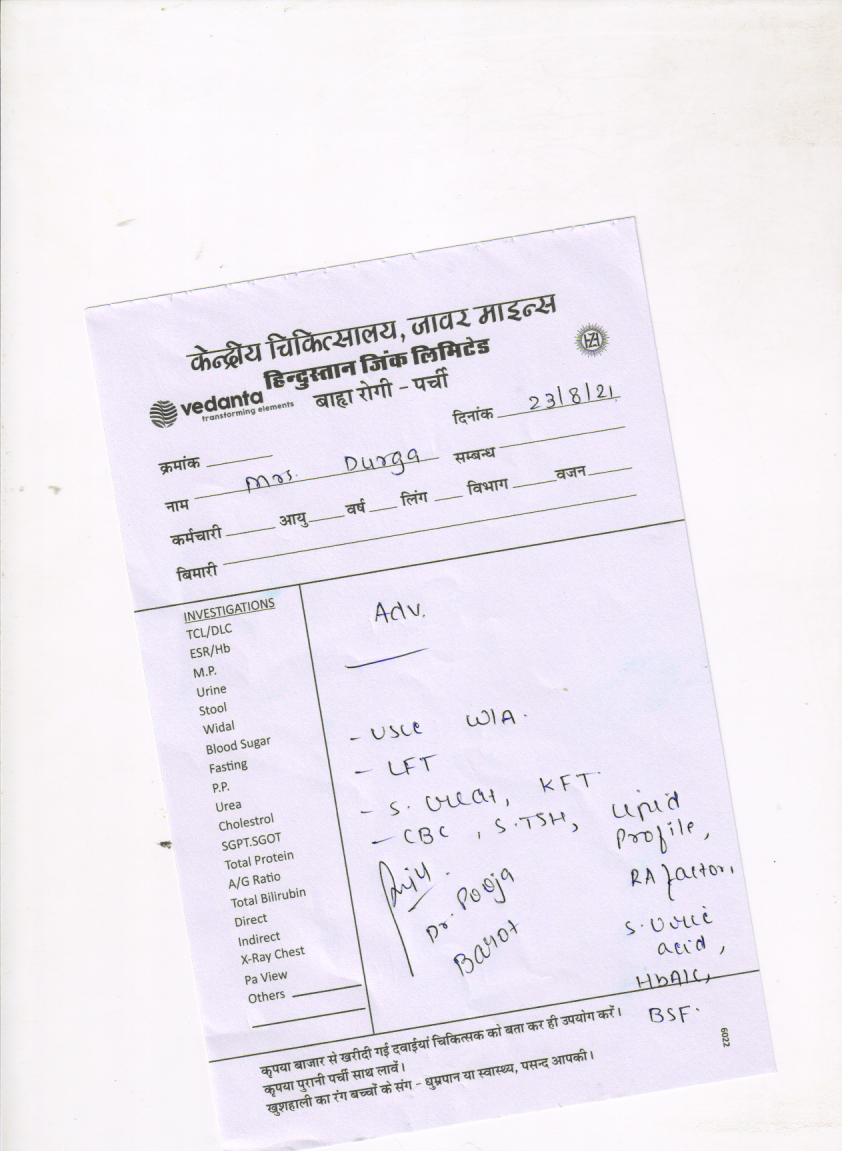 केन्द्रीय चिकित्सालय, जावर माइन्स
हिन्दुस्तान जिंक लिमिटेड
vedanta
transforming elements
बाह्य रोगी - पर्ची
दिनांक 23/8/21
क्रमांक
नाम Mrs. Durga सम्बन्ध
कर्मचारी आयु वर्ष लिंग विभाग वजन
बिमारी
INVESTIGATIONS
TCL/DLC
ESR/Hb
M.P.
Urine
Stool
Widal
Blood Sugar
Fasting
P.P.
Urea
Cholestrol
SGPT.SGOT
Total Protein
A/G Ratio
Total Bilirubin
Direct
Indirect
X-Ray Chest
Pa View
Others
Adv.
- W/A.
- LFT
- S. KFT.
- CBC, S.TSH, Lipid
Profile,
RA factor,
S. Uric
acid,
HbA1C,
BSF.
Dr. Pooja
Barot
कृपया बाजार से खरीदी गई दवाईयां चिकित्सक को बता कर ही उपयोग करें।
कृपया पुरानी पर्ची साथ लावें।
खुशहाली का रंग बच्चों के संग - धुम्रपान या स्वास्थ्य, पसन्द आपकी।
6022